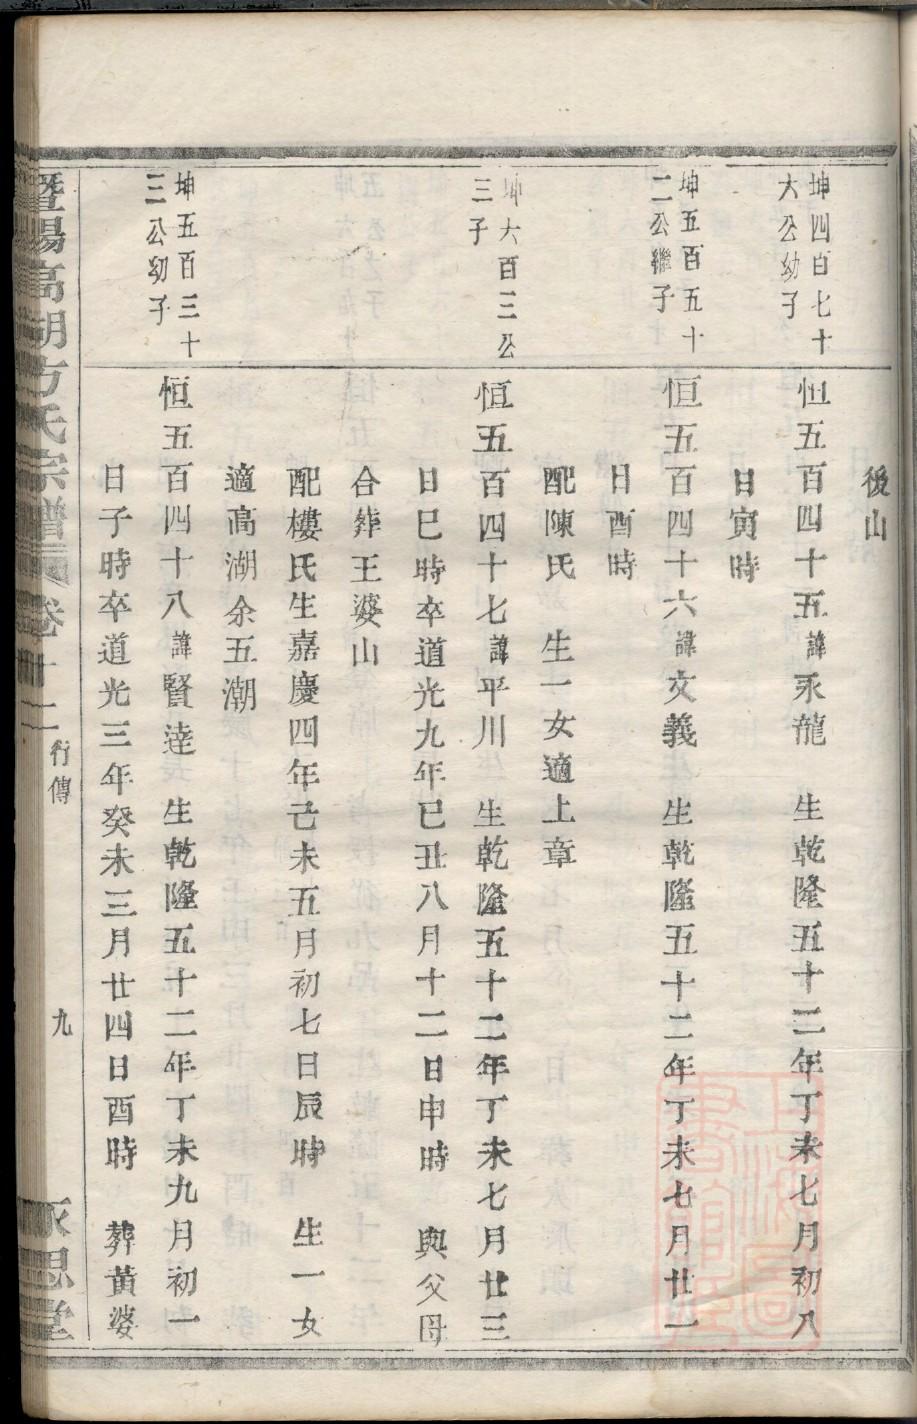 後山
坤四百七十
六公幼子
恒五百四十五諱永龍　生乾隆五十二年丁未七月初八
日寅時
坤五百五十
二公繼子
恒五百四十六諱文義　生乾隆五十二年丁未七月廿一
日酉時
配陳氏　生一女適上章
坤六百三公
三子
恒五百四十七諱平川　生乾隆五十二年丁未七月廿三
日巳時卒道光九年己丑八月十二日申時　與父母
合葬王婆山
配樓氏生嘉慶四年己未五月初七日辰時　生一女
適高湖余五潮
坤五百三十
三公幼子
恒五百四十八諱賢達　生乾隆五十二年丁未九月初一
日子時卒道光三年癸未三月廿四日酉時　葬黃婆
暨陽高湖方氏宗譜 卷十二 行傳 九 永思堂